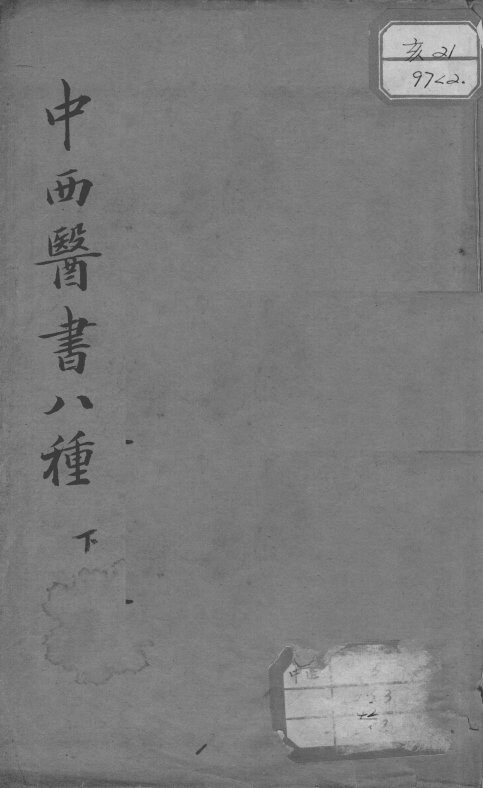 中西醫書八種
下
亥21
97<2.
中西